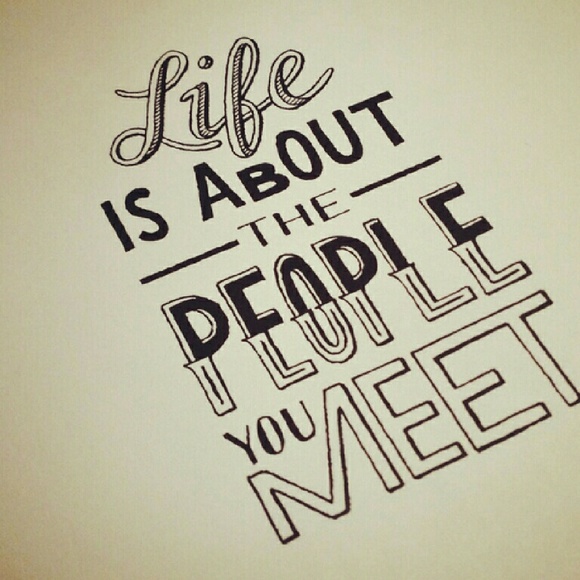 Life
IS ABOUT
THE
PEOPLE
YOU MEET